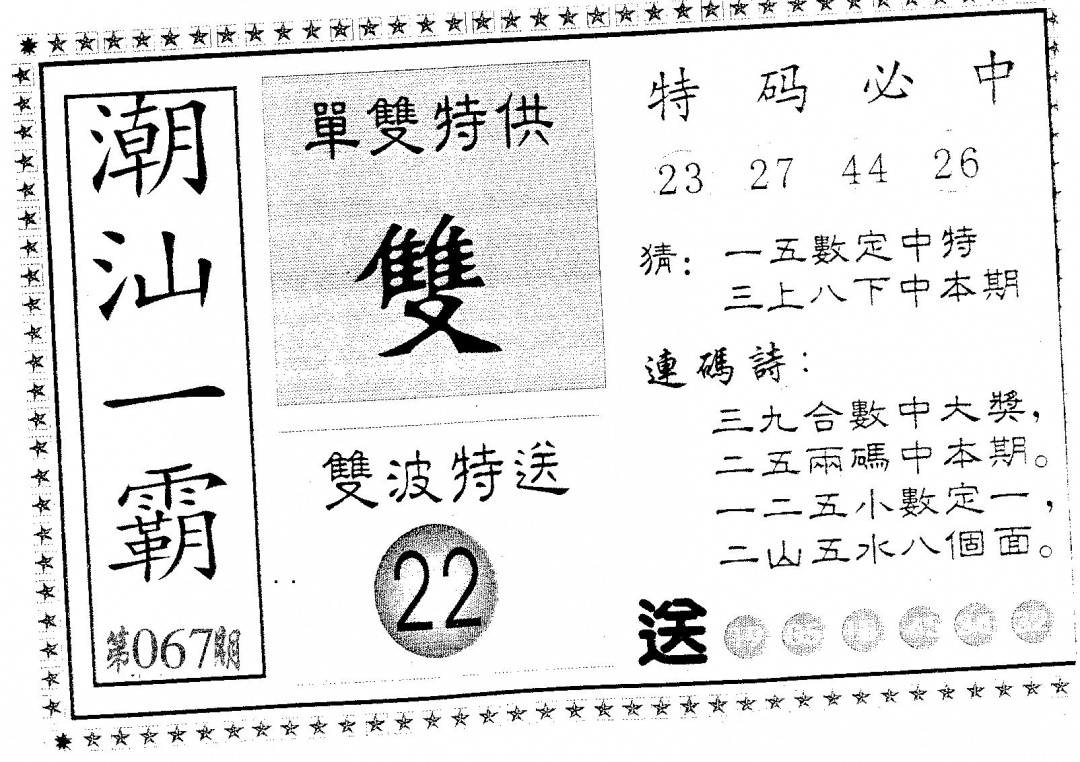 潮汕一霸
第067期
單雙特供
雙
雙波特送
22
特码必中
23 27 44 26
猜：一五數定中特
三上八下中本期
連碼詩：
三九合數中大獎，
二五兩碼中本期。
一二五小數定一，
二山五水八個面。
送